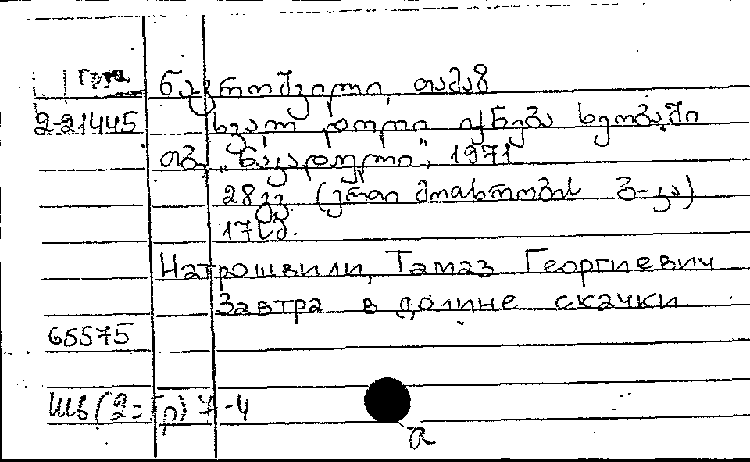 Груз.
ნატროშვილი, თამაზ
2-21445
ხვალ დოღი იქნება ხეობაში
თბ., „ნაკადული", 1971
28 გვ. (ერთი მოთხრობის წ-კი)
17 კ.
Натрошвили, Тамаз Георгиевич
Завтра в долине скачки
65575
Шв(2=Гр)7-4